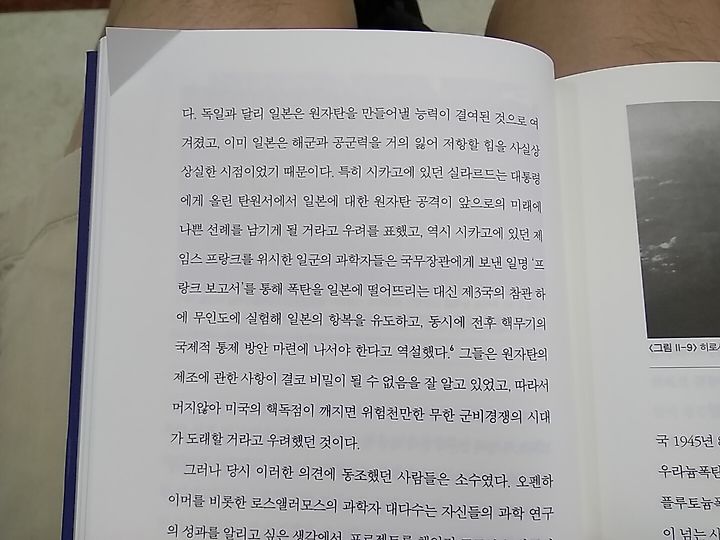 다. 독일과 달리 일본은 원자탄을 만들어낼 능력이 결여된 것으로 여
겨졌고, 이미 일본은 해군과 공군력을 거의 잃어 저항할 힘을 사실상
상실한 시점이었기 때문이다. 특히 시카고에 있던 실라르드는 대통령
에게 올린 탄원서에서 일본에 대한 원자탄 공격이 앞으로의 미래에
나쁜 선례를 남기게 될 거라고 우려를 표했고, 역시 시카고에 있던 제
임스 프랑크를 위시한 일군의 과학자들은 국무장관에게 보낸 일명 '프
랑크 보고서'를 통해 폭탄을 일본에 떨어뜨리는 대신 제3국의 참관 하
에 무인도에 실험해 일본의 항복을 유도하고, 동시에 전후 핵무기의
국제적 통제 방안 마련에 나서야 한다고 역설했다.⁶ 그들은 원자탄의
제조에 관한 사항이 결코 비밀이 될 수 없음을 잘 알고 있었고, 따라서
머지않아 미국의 핵독점이 깨지면 위험천만한 무한 군비경쟁의 시대
가 도래할 거라고 우려했던 것이다.
그러나 당시 이러한 의견에 동조했던 사람들은 소수였다. 오펜하
이머를 비롯한 로스앨러모스의 과학자 대다수는 자신들의 과학 연구
의 성과를 알리고 싶은 생각에서, 프로젝트를
<그림 II-9> 히로
국 1945년
우라늄폭탄
플루토늄폭
이 넘는